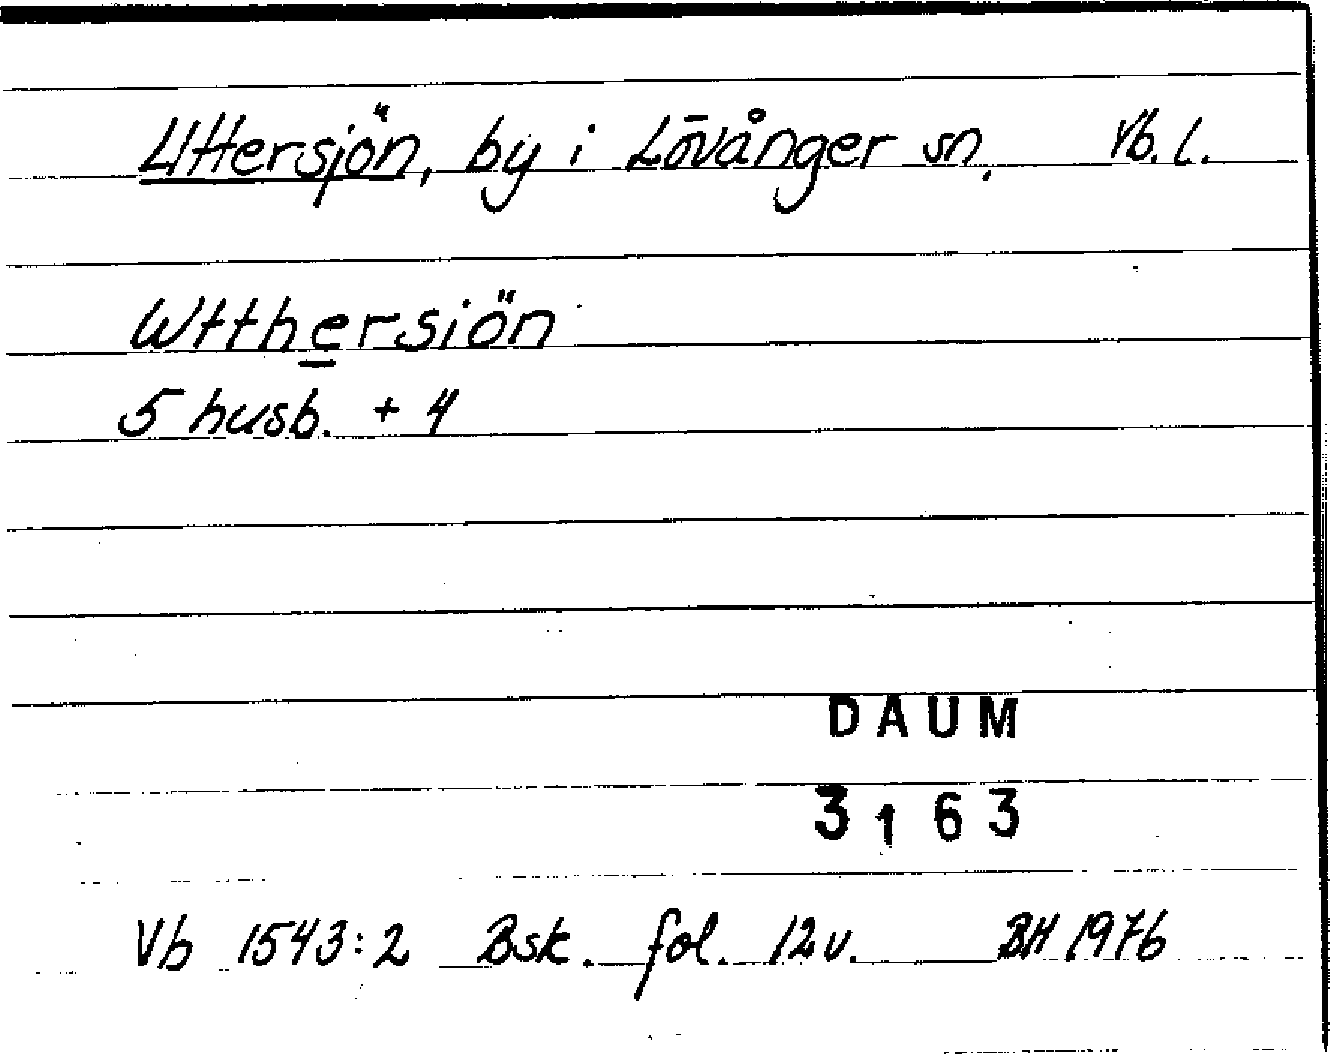 Uttersjön, by i Lövånger sn. Vb. l.
Wtthersiön
5 husb. + 4
DAUM
3163
Vb 1543:2 Bsk. fol. 12v. BH 1976